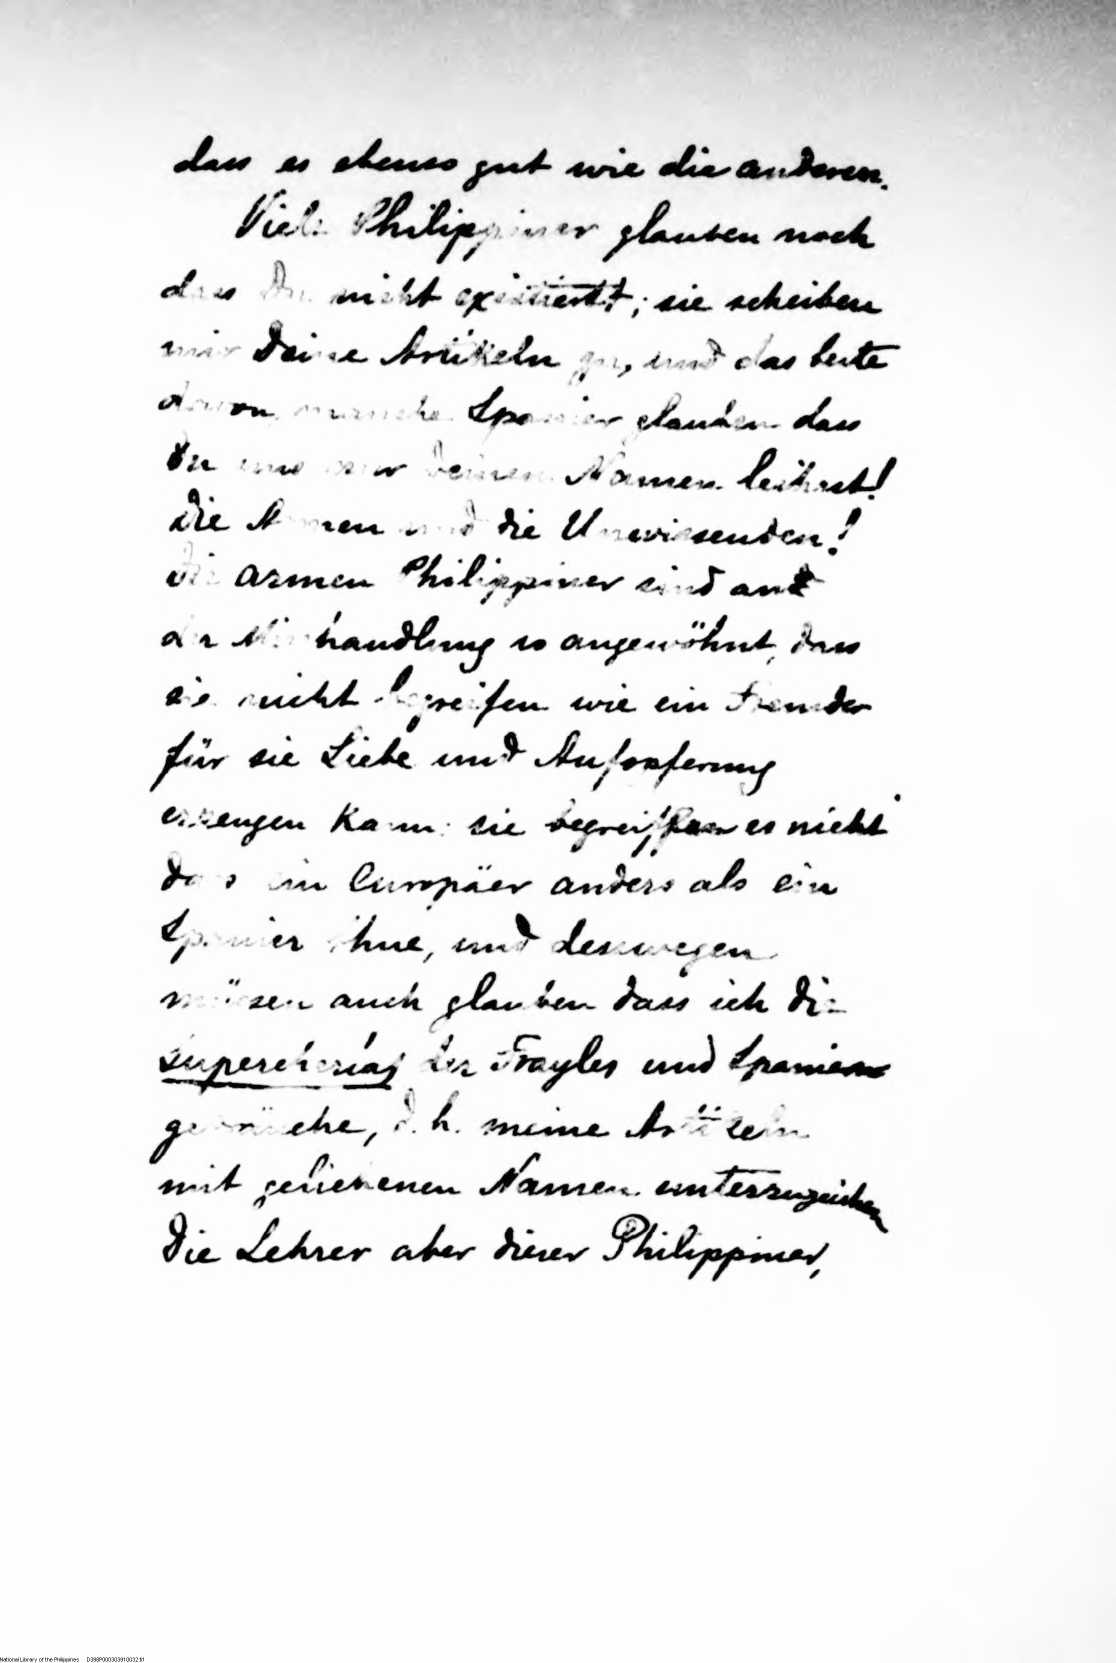 dass es ebenso gut wie die anderen.
Viele Philippiner glauben noch
dass Du nicht existierst; sie scheiben
mir Deine Artikeln zu, und das beste
davon, manche Spanier glauben dass
Du uns nur deinen Namen leihest!
Die Armen und die Unwissenden!
Die armen Philippiner sind an
der Misshandlung so angewöhnt, dass
sie nicht begreifen wie ein Fremder
für sie Liebe und Aufopferung
erzeugen kann: sie begreiffen es nicht
dass ein Europäer anders als ein
Spanier thue, und desswegen
müssen auch glauben dass ich die
supercherias der Frayles und Spanier
gebräuche, d.h. meine Artikeln
mit geliehenen Namen unterzuzeichen
Die Lehrer aber dieser Philippiner,
National Library of the Philippines